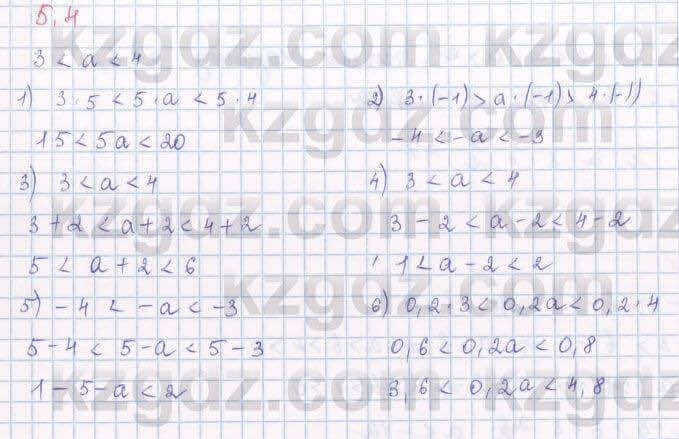 5.4
3 < a < 4
1) 3·5 < 5·a < 5·4
15 < 5a < 20
2) 3·(-1) > a·(-1) > 4·(-1)
-4 < -a < -3
3) 3 < a < 4
3+2 < a+2 < 4+2
5 < a+2 < 6
4) 3 < a < 4
3-2 < a-2 < 4-2
1 < a-2 < 2
5) -4 < -a < -3
5-4 < 5-a < 5-3
1-5-a < 2
6) 0,2·3 < 0,2a < 0,2·4
0,6 < 0,2a < 0,8
3,6 < 0,2a < 4,8
kzgdz.com
kzgdz.com
kzgdz.com
kzgdz.com
kzgdz.com